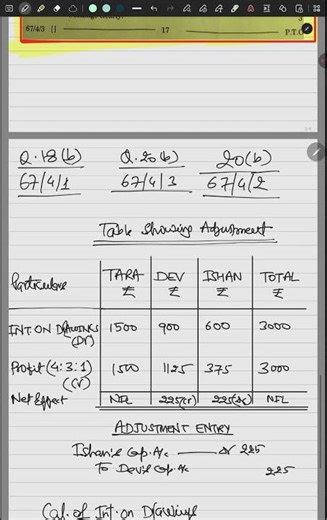 67/4/3 [] 17 P.T.O
Q.18(b) Q.20(b) 20(b)
67/4/1 67/4/3 67/4/2
Table Showing Adjustment
Particulars TARA ₹ DEV ₹ ISHAN ₹ TOTAL ₹
INT. ON DRAWINGS (Dr) 1500 900 600 3000
Profit (4:3:1) (Cr) 1500 1125 375 3000
Net Effect NIL 225(Cr) 225(Dr) NIL
ADJUSTMENT ENTRY
Ishan's Cap. A/c Dr 225
To Dev's Cap. A/c 225
Cal. of Int. on Drawings